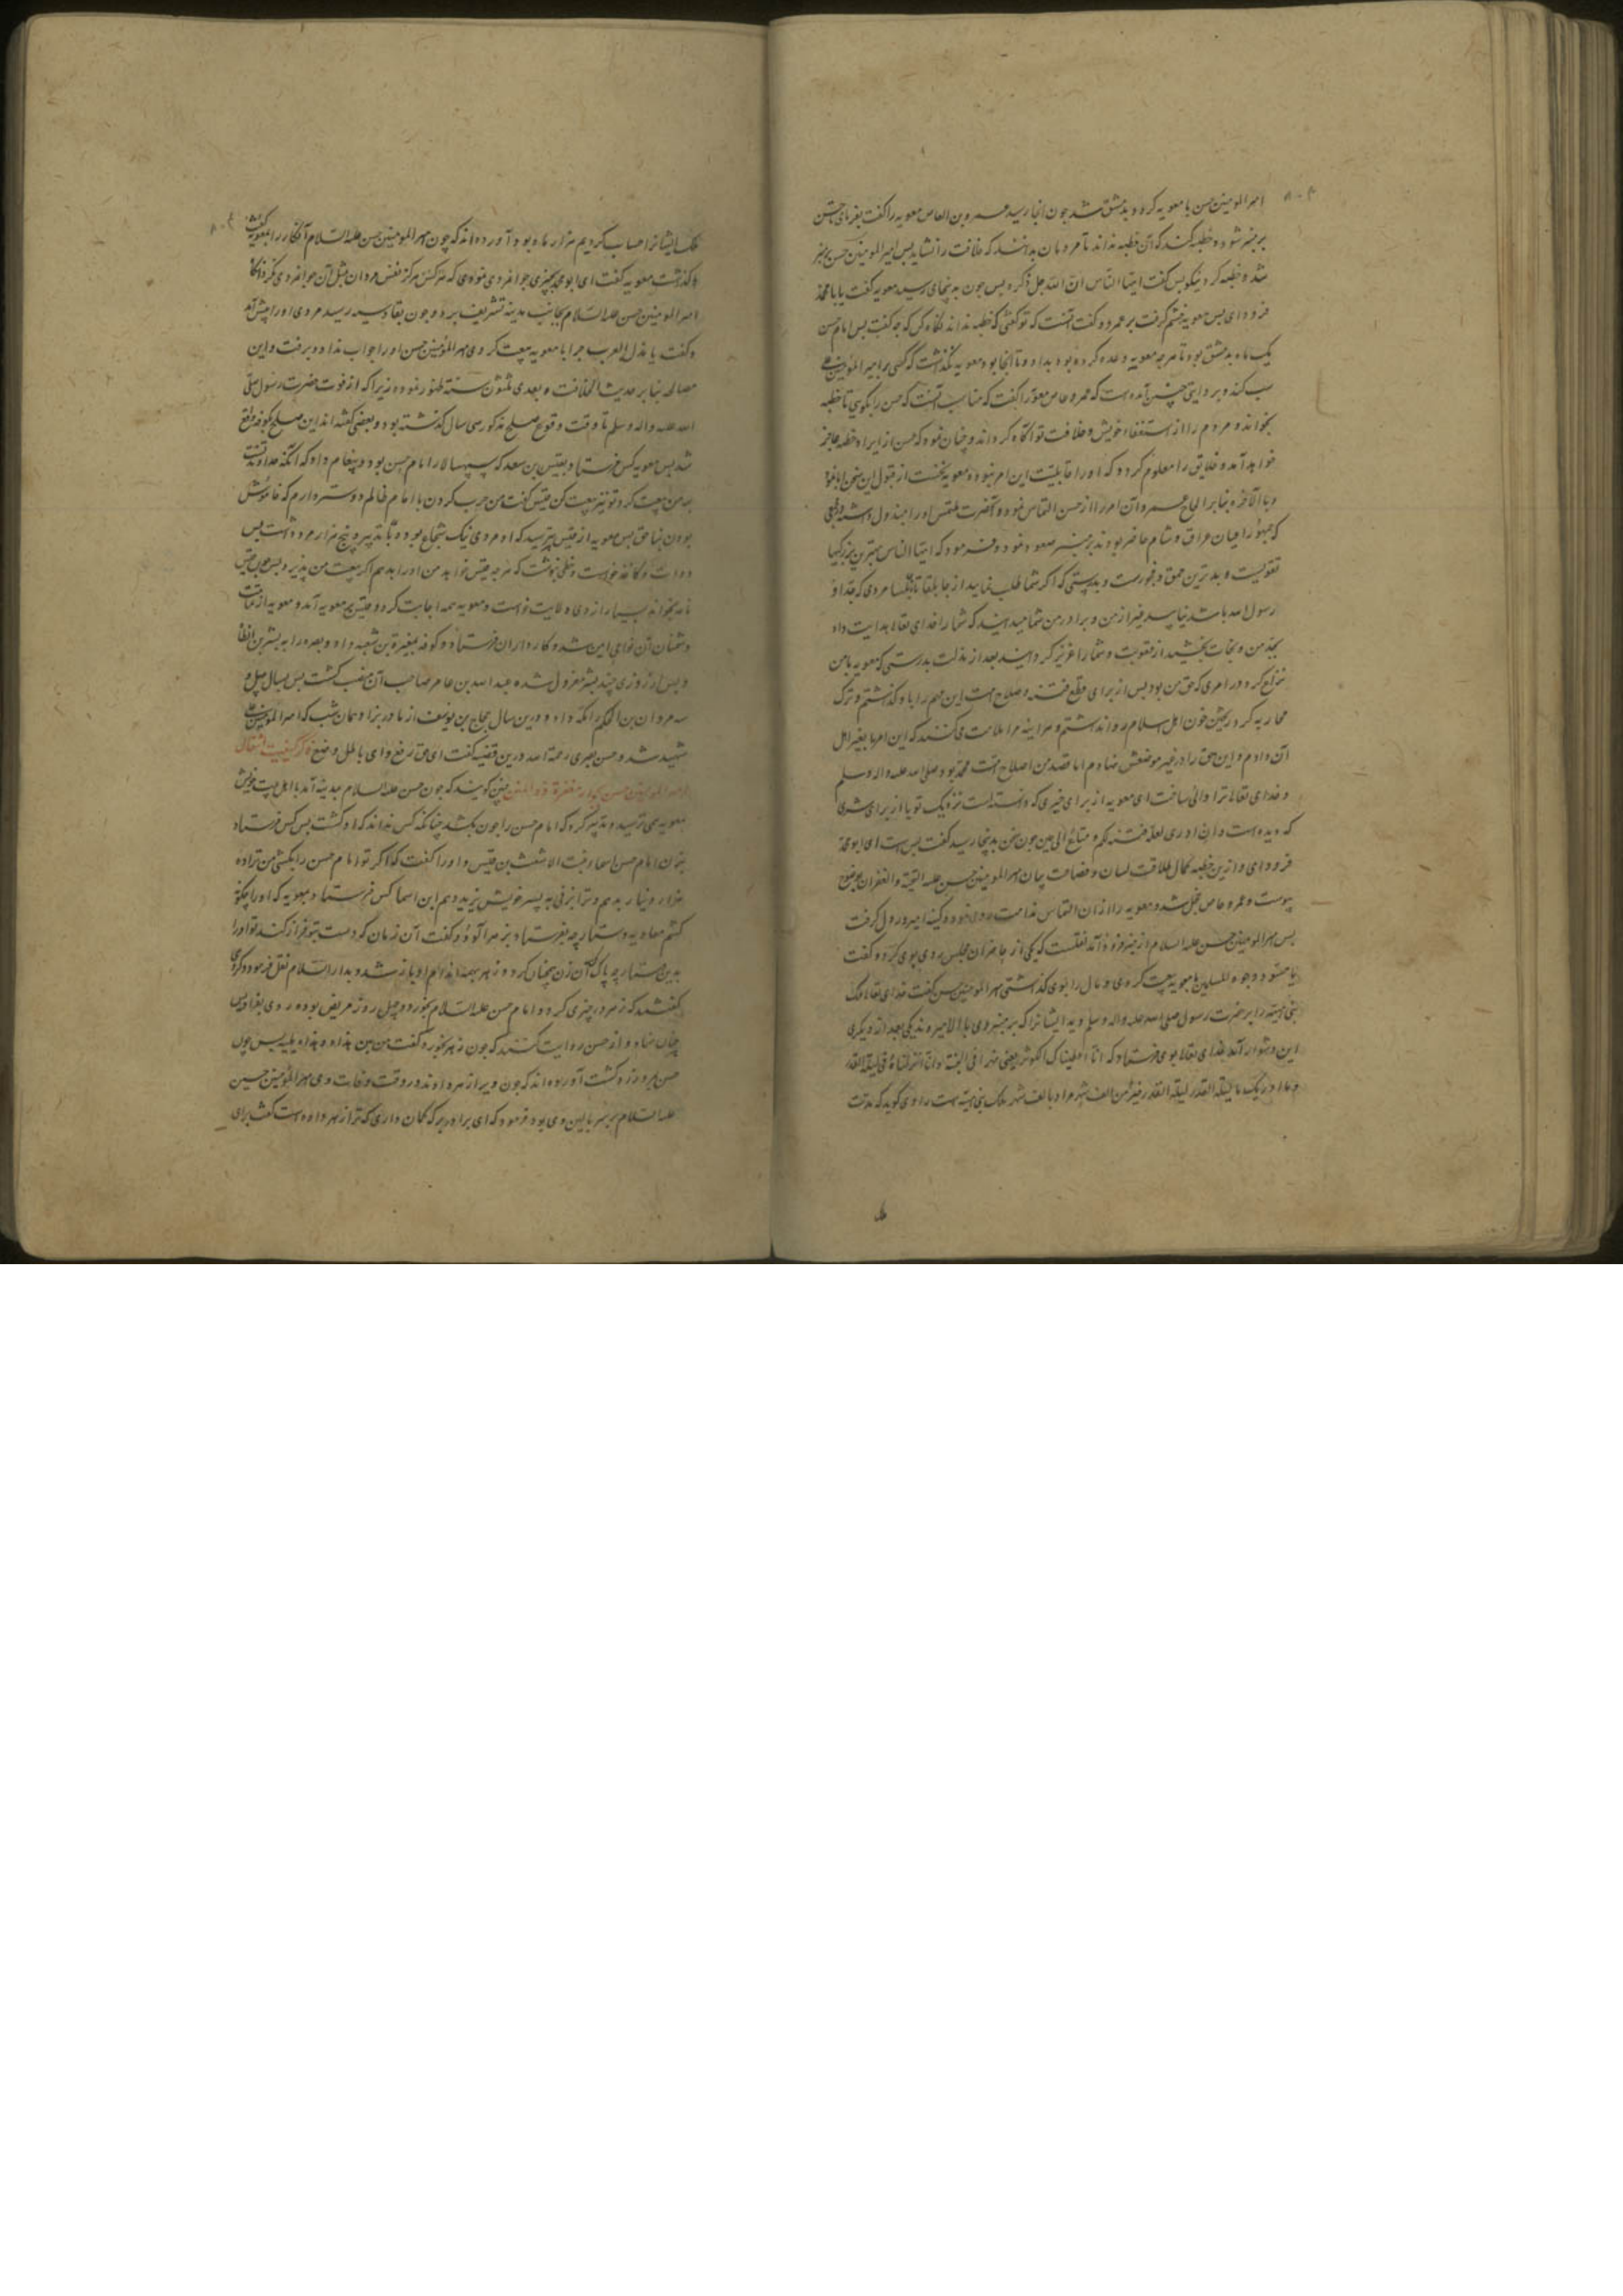 امیرالمومنین حسن با معویه کرد و بدمشق شد چون انجا رسید عمرو بن العاص معویه را گفت بفرمای تا حسن
بر منبر شود و خطبه کند که آن خطبه نداند تا مردمان بدانند که خلافت را نشاید پس امیرالمومنین حسن بر منبر
شد و خطبه کرد نیکو پس گفت ایها الناس ان الله جل ذکره پس چون به پنجای رسید معویه گفت یا بامحمد
فرود ای پس معویه خشم گرفت بر عمرو و گفت آنست که تو گفتی که خطبه نداند نگاه کن که چه گفت پس امام حسن
یک ماه بدمشق بود تا هرچه معویه وعده کرده بود بداد و تا انجا بود معویه نگذشت که کسی مر امیرالمومنین علی
سب کند و بروایتی چنین آمده است که عمرو عاص معویه را گفت که مناسب آنست که حسن را بگویی تا خطبه
بخواند و مردم را از استعفاء خویش و خلافت تو آگاه گرداند و چنان نمود که حسن از ایراد خطبه عاجز
خواهد آمد و خلایق را معلوم گردد که او را قابلیت این امر نبوده معویه نخست از قبول این سخن ابا نمود
و بالآخره بنابر الحاح عمرو آن امر را از حسن التماس نمود و آنحضرت ملتمس او را مبذول داشته وقتی
که جمهور اعیان عراق و شام حاضر بودند بر منبر صعود نمود و فرمود که ایها الناس بهترین بزرگیها
تقویست و بدترین حمق و فجورست و بدرستی که اگر شما طلب نمایید از جابلقا تا جابلسا مردی که جد او
رسول الله باشد نیابید غیر از من و برادر من شما میدانید که شما را خدای تعالی هدایت داد
بجد من و نجات بخشید از و شما را عزیز گردانید بعد از مذلت بدرستی که معویه با من
نزاع کرد در امری که حق من بود پس از برای قطع فتنه و صلاح امت این مهم را باو گذاشتم و ترک
محاربه کرد ریختن خون اهل اسلام روا نداشتم و هر اینه مرا ملامت می کنند که این امر با بغیر اهل
آن دادم و این حق را در غیر موضعش نهادم اما قصد من اصلاح امت محمد بود صلی الله علیه واله وسلم
و خدای تعالی ترا والی ساخت ای معویه از برای خیری که دانسته است نزدیک تو یا از برای شری
که دیده است و ان ادری لعله فتنة لکم و متاع الی حین چون سخن بدینجا رسید گفت بس است ای ابو محمد
فرود ای و ازین خطبه کمال طلاقت لسان و فصاحت بیان امیرالمومنین حسن علیه التحیة والغفران بوضوح
پیوست و عمرو عاص خجل شد و معویه را از ان التماس ندامت روی نموده کینه امیر در دل گرفت
پس امیرالمومنین حسن علیه السلام از منبر فرود آمد نقلست که یکی از حاضران مجلس روی بوی کرد و گفت
یا مسود وجوه المسلمین با معویه بیعت کردی و مال را بوی گذاشتی امیرالمومنین حسن گفت خدای تعالی ملک
بنی امیه را بر حضرت رسول صلی الله علیه واله وسلم دید ایشانرا که بر منبر وی بالا میروند یکی بعد از دیگری
این دشوار آمد خدای تعالی بوی فرستاد که انا اعطیناک الکوثر یعنی نهرا فی الجنة و انا انزلناه فی لیلة القدر
و ما ادریک ما لیلة القدر لیلة القدر خیر من الف شهر مراد بالف شهر ملک بنی امیه است راوی گوید که مدت
ملک ایشانرا حساب کردیم هزار ماه بود آورده اند که چون امیرالمومنین حسن علیه السلام آن کار را بمعویه
واگذاشت معویه گفت ای ابو محمد بچیزی جوانمردی نمودی که هرگز نفس مردان مثل آن جوانمردی نکرده
امیرالمومنین حسن علیه السلام بجانب مدینه تشریف برد و چون بقادسیه رسید مردی او را پیش آمد
و گفت یا مذل العرب چرا با معویه بیعت کردی امیرالمومنین حسن او را جواب نداد و برفت و این
مصالحه بنا بر حدیث الخلافة بعدی ثلثون سنة ظهور نموده زیرا که از فوت حضرت رسول صلی
الله علیه واله وسلم تا وقت وقوع صلح مذکور سی سال گذشته بود و بعضی گفته اند این صلح بکوفه واقع
شد پس معویه کس فرستاد بقیس بن سعد که سپهسالار امام حسن بود و پیغام داد که آنکه خداوند تست
بر من بیعت کرد تو نیز بیعت کن قیس گفت من حرب کردن با امام ظالم دوستر دارم که خاموش
بودن بناحق پس معویه از قیس بترسید که او مردی نیک شجاع بود و با تدبیر و پنج هزار مرد داشت پس
دوات و کاغذ خواست و خطی نوشت که هرچه قیس خواهد من او را بدهم اگر بیعت من پذیرد پس چون قیس
نامه بخواند بسیار از وی ولایت خواست و معویه همه اجابت کرد و قیس بر معویه آمد و معویه از
دشمنان آن نواحی ایمن شد و کارداران فرستاد و کوفه بمغیرة بن شعبه داد و بصره را به بسر بن ارطاة
و پس از روزی چند بسر معزول شده عبدالله بن عامر صاحب آن منصب گشت پس بسال چهل و
سه مروان بن الحکم را مکه داد و درین سال حجاج بن یوسف از مادر بزاد و همان شب که امیرالمومنین علی
شهید شد و حسن بصری رحمه الله درین قضیه گفت ای حق رفع و ای باطل وضع ذکر کیفیت انتقال
امیرالمومنین حسن بجوار مغفرة ذوالمنن چنین گویند که چون حسن علیه السلام بمدینه آمد با اهل بیت خویش
معویه می ترسید و تدبیر کرد که امام حسن را چون بکشد چنانکه کس نداند که او کشت پس کس فرستاد
بزن امام حسن اسما بنت الاشعث بن قیس و او را گفت که اگر تو امام حسن را بکشی من ترا ده
هزار دینار بدهم و ترا بزنی به پسر خویش یزید دهم این اسما کس فرستاد بمعویه که او را چگونه
کشم معاویه دستارچه بفرستاد بزهر آلوده و گفت آن زمان که دست بتو فراز کند تو او را
بدین دستارچه پاک کن آن زن چنان کرد و زهر بهمه اندام او باز شد و بدار السلام نقل فرمود و گروهی
گفتند که زهر در چیزی کرد و امام حسن علیه السلام بخورد و چهل روز مریض بود و روی بغداد پس
جان بداد و از حسن روایت کنند که چون زهر بخورد گفت من بین هذا و هذا بلیه پس چون
حسن در گشت آورده اند که چون ویرا زهر دادند در وقت وفات وی امیرالمومنین حسین
علیه السلام بر سر بالین وی بود فرمود که ای برادر بر که گمان داری که ترا زهر داده است گفت برای